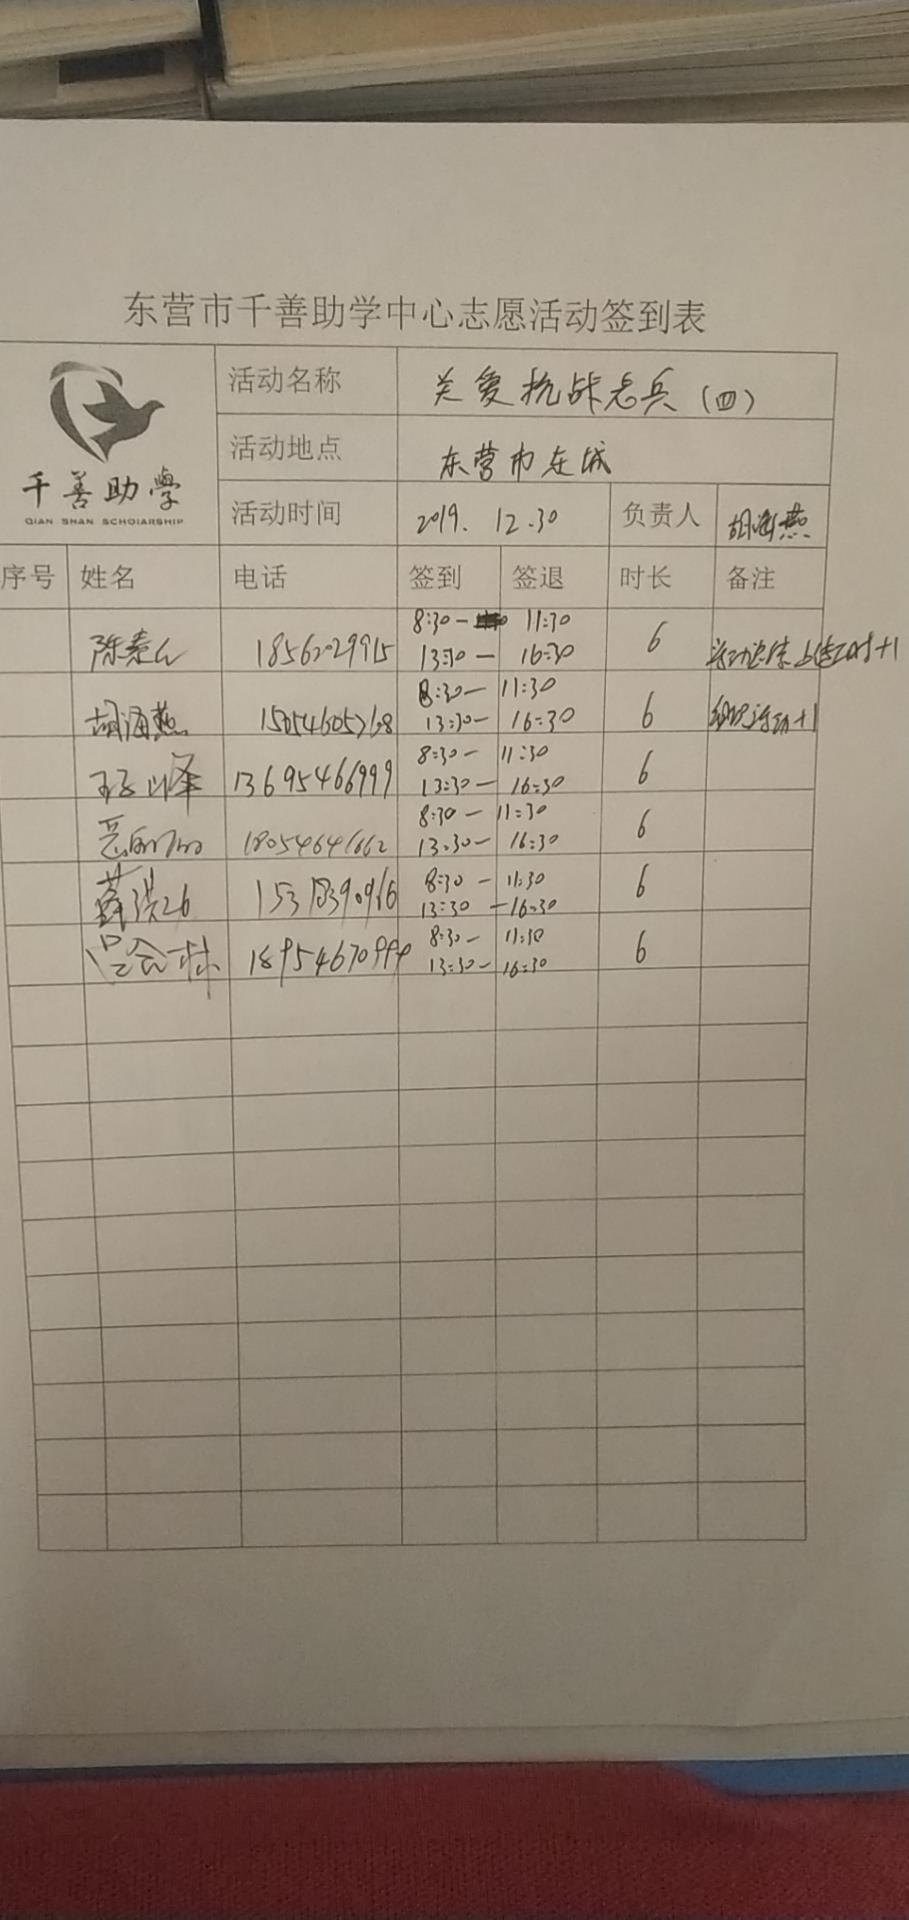 东营市千善助学中心志愿活动签到表
千善助學
QIAN SHAN SCHOLARSHIP
活动名称 关爱抗战老兵（四）
活动地点 东营市东城
活动时间 2019.12.30 负责人 胡海燕
序号 姓名 电话 签到 签退 时长 备注
8:30- 11:30
13:30- 16:30 6
8:30- 11:30
胡海燕 13:30- 16:30 6 组织活动+1
8:30- 11:30
峰 13695466999 13:30- 16:30 6
8:30- 11:30
18054641662 13:30- 16:30 6
8:30- 11:30
薛洪 13:30-16:30 6
8:30- 11:30
吕会林 18954670999 13:30- 16:30 6